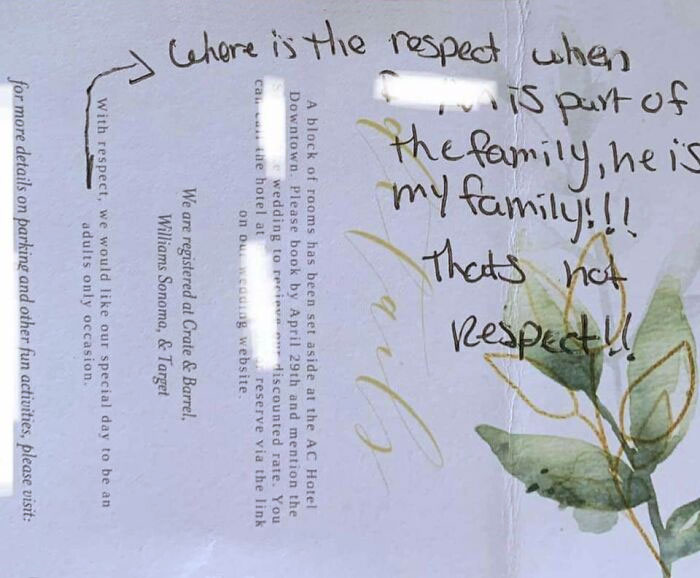 Where is the respect when
is part of
the family, he is
my family!!!
Thats not
Respect!!
A block of rooms has been set aside at the AC Hotel
Downtown. Please book by April 29th and mention the
wedding to recieve our discounted rate. You
can call the hotel at reserve via the link
on our wedding website.
We are registered at Crate & Barrel,
Williams Sonoma, & Target
With respect, we would like our special day to be an
adults only occasion.
for more details on parking and other fun activities, please visit: